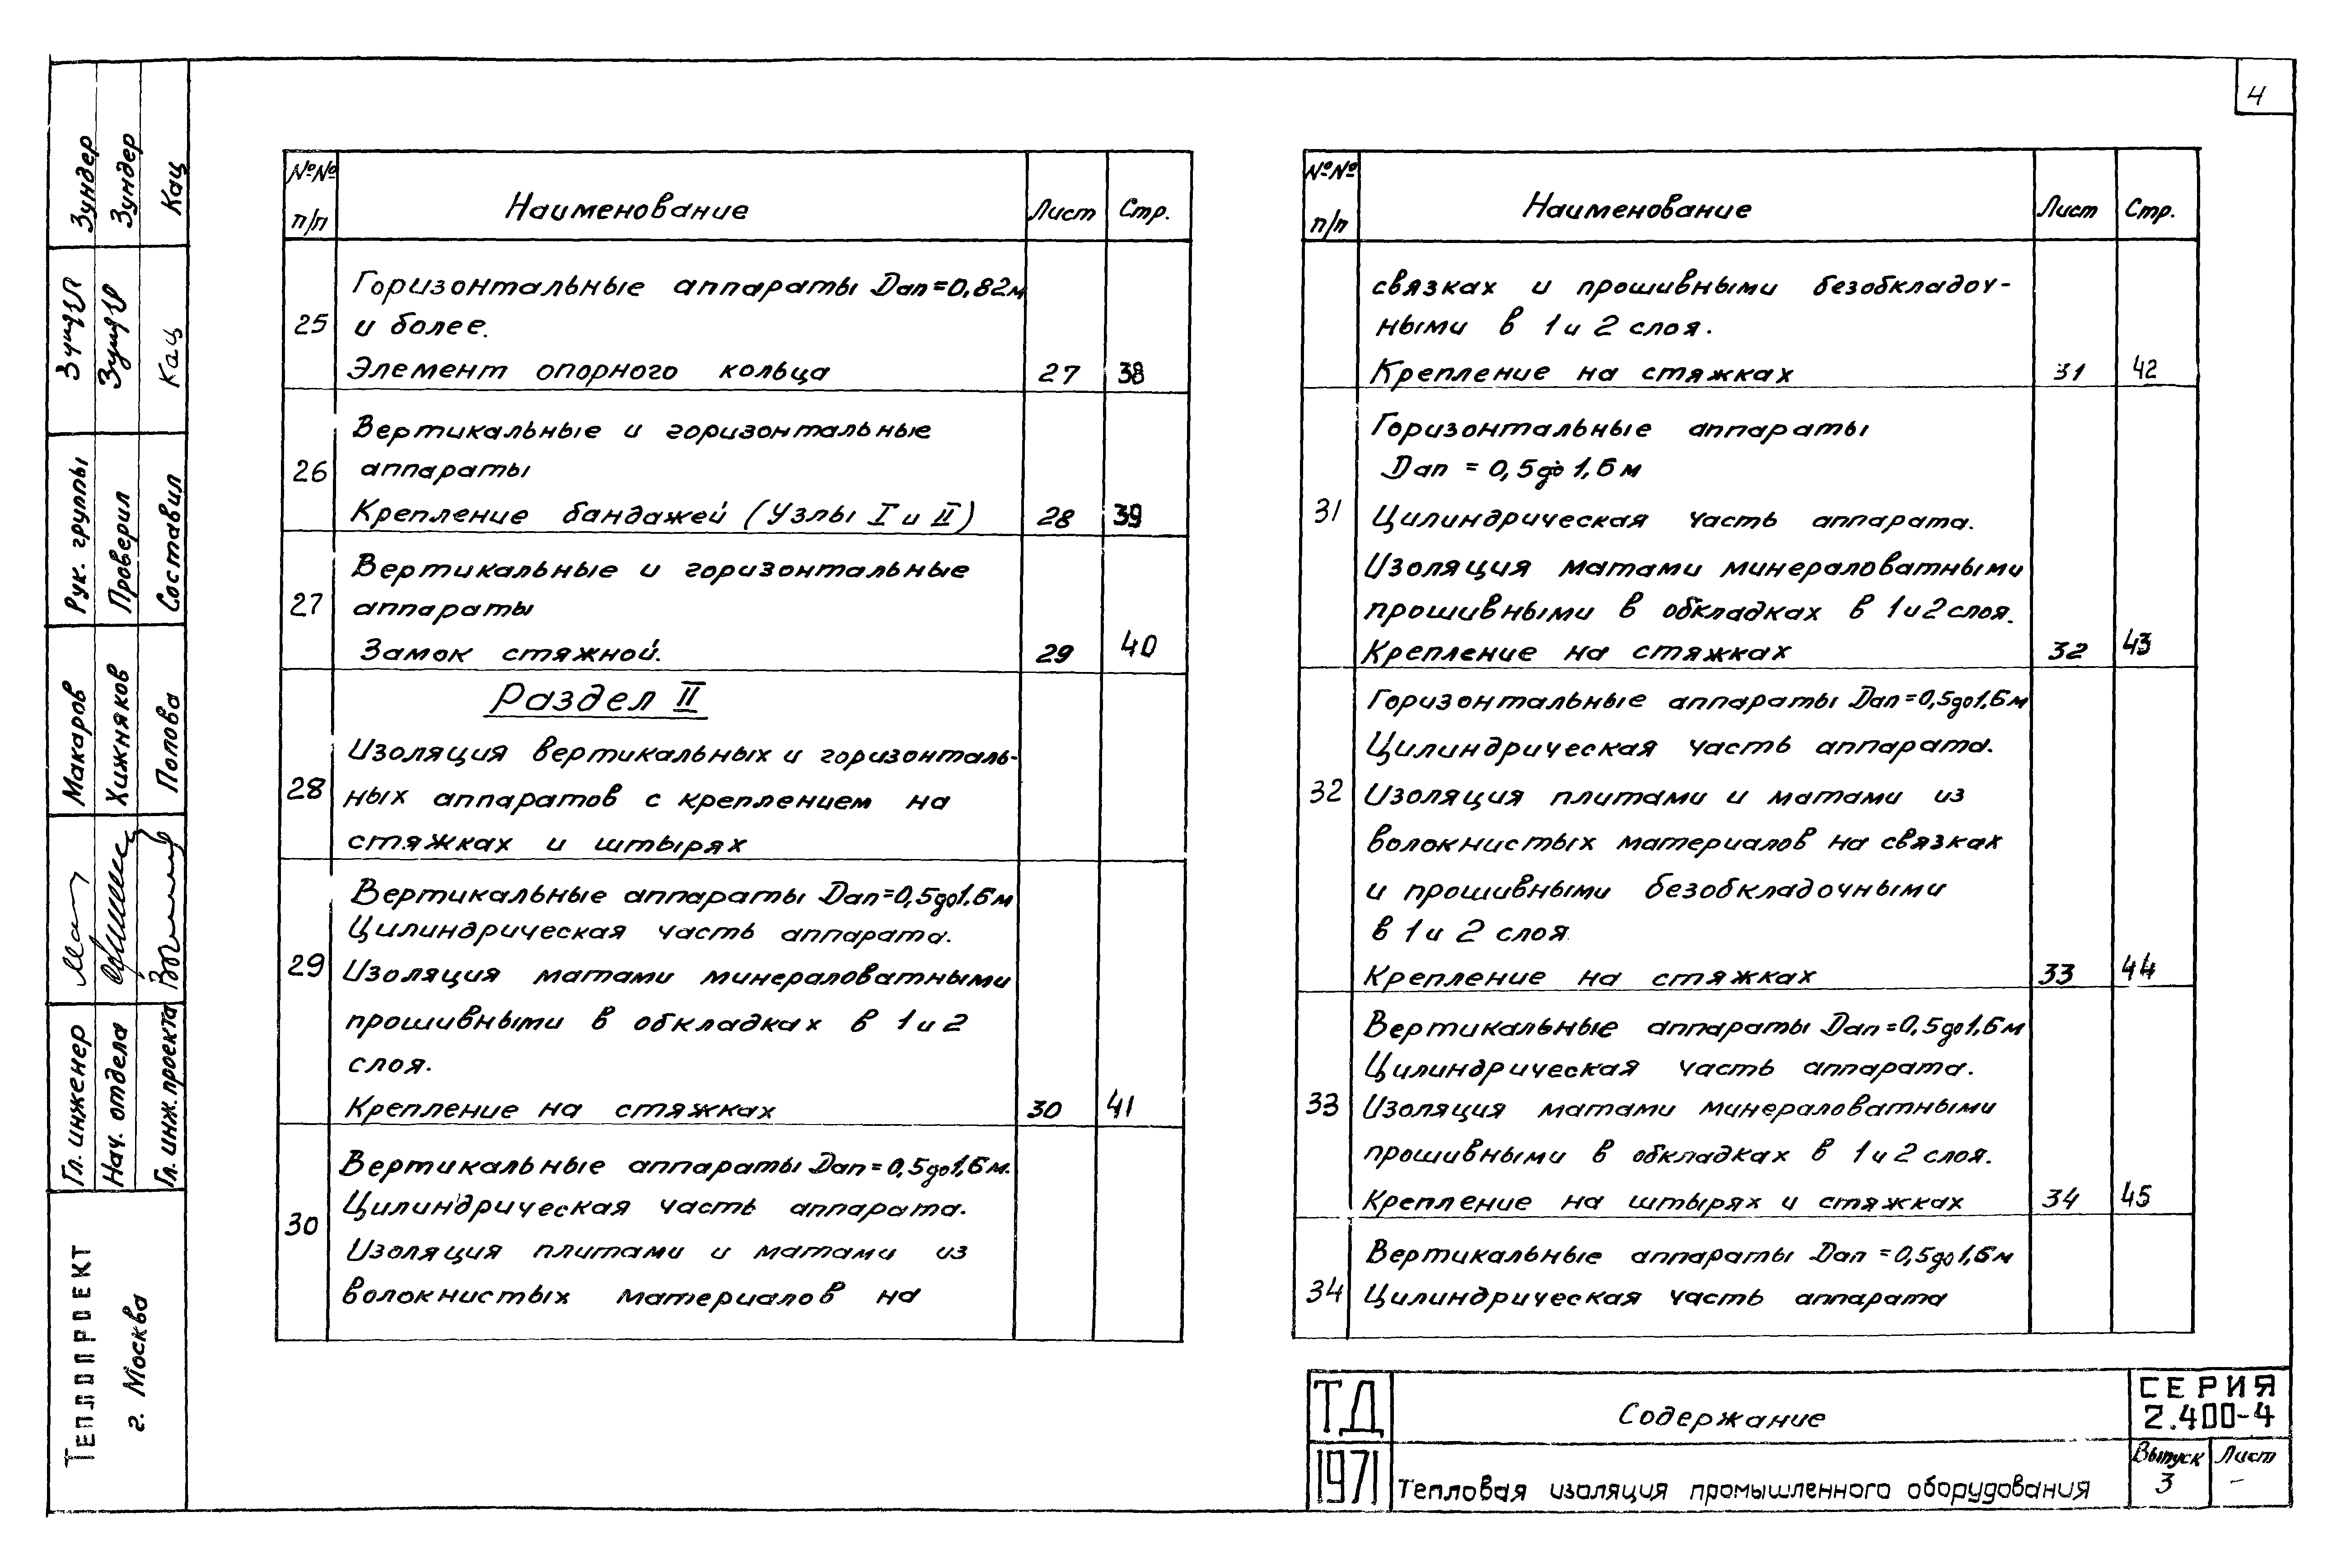 4
№№ п/п
Наименование
Лист
Стр.
25
Горизонтальные аппараты Dап=0,82м
и более.
Элемент опорного кольца 27 38
26
Вертикальные и горизонтальные
аппараты
Крепление бандажей (Узлы I и II) 28 39
27
Вертикальные и горизонтальные
аппараты
Замок стяжной. 29 40
Раздел II
28
Изоляция вертикальных и горизонталь-
ных аппаратов с креплением на
стяжках и штырях
29
Вертикальные аппараты Dап=0,5до1,6м
Цилиндрическая часть аппарата.
Изоляция матами минераловатными
прошивными в обкладках в 1 и 2
слоя.
Крепление на стяжках 30 41
30
Вертикальные аппараты Dап=0,5до1,6м.
Цилиндрическая часть аппарата.
Изоляция плитами и матами из
волокнистых материалов на
№№ п/п
Наименование
Лист
Стр.
связках и прошивными безобкладоч-
ными в 1 и 2 слоя.
Крепление на стяжках 31 42
31
Горизонтальные аппараты
Dап = 0,5до 1,6м
Цилиндрическая часть аппарата.
Изоляция матами минераловатными
прошивными в обкладках в 1 и 2 слоя.
Крепление на стяжках 32 43
32
Горизонтальные аппараты Dап=0,5до1,6м
Цилиндрическая часть аппарата.
Изоляция плитами и матами из
волокнистых материалов на связках
и прошивными безобкладочными
в 1 и 2 слоя
Крепление на стяжках 33 44
33
Вертикальные аппараты Dап=0,5до1,6м
Цилиндрическая часть аппарата.
Изоляция матами минераловатными
прошивными в обкладках в 1 и 2 слоя.
Крепление на штырях и стяжках 34 45
34
Вертикальные аппараты Dап=0,5до1,6м
Цилиндрическая часть аппарата
ТД
1971
Содержание
Тепловая изоляция промышленного оборудования
СЕРИЯ
2.400-4
Выпуск
3
Лист
-
Теплопроект
г. Москва
Гл. инженер Макаров Рук. группы Зундер
Нач. отдела Хижняков Проверил Зундер
Гл. инж. проекта Попова Составил Кац Кац